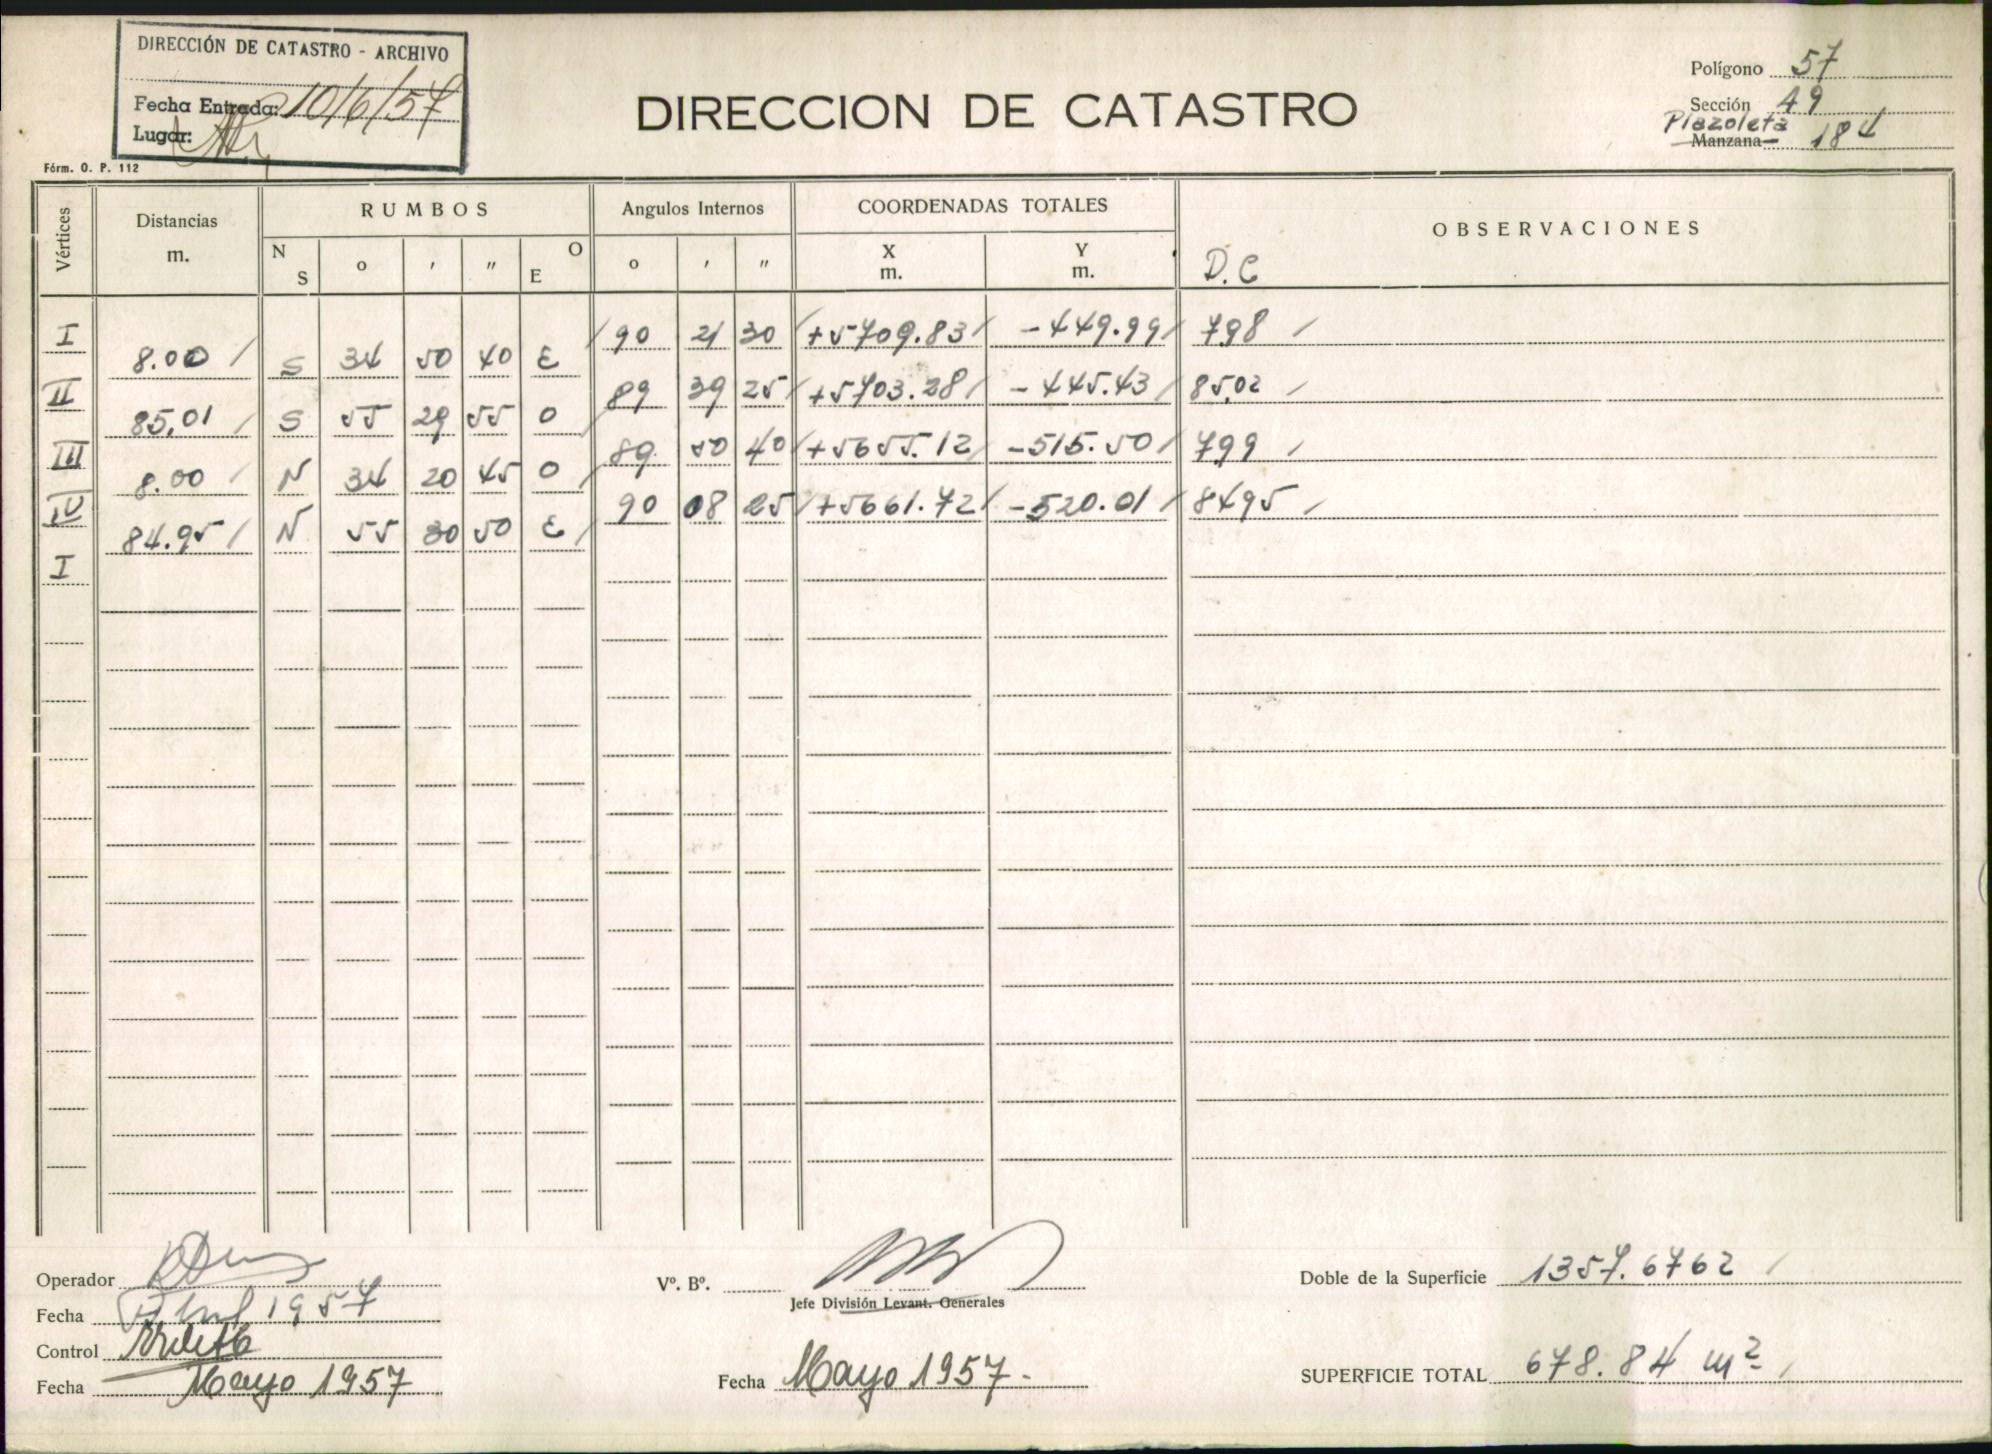 DIRECCIÓN DE CATASTRO - ARCHIVO
Fecha Entrada: 10/6/57
Lugar:
Fórm. O. P. 112
DIRECCION DE CATASTRO
Polígono 57
Sección 49
Plazoleta
Manzana 184
Vértices Distancias m. RUMBOS Angulos Internos COORDENADAS TOTALES OBSERVACIONES
N S o ' " O E o ' " X m. Y m. D.C
I 90 21 30 +5709.83 -449.99 798
8.00 S 34 50 40 E
II 89 39 25 +5703.28 -445.43 85,02
85,01 S 55 29 55 O
III 89 50 40 +5655.12 -515.50 799
8.00 N 34 20 45 O
IV 90 08 25 +5661.72 -520.01 8495
84.95 N 55 30 50 E
I
Operador
Fecha 1957
Control
Fecha Mayo 1957
Vº. Bº.
Jefe División Levant. Generales
Fecha Mayo 1957.-
Doble de la Superficie 1357.6762
SUPERFICIE TOTAL 678.84 m²